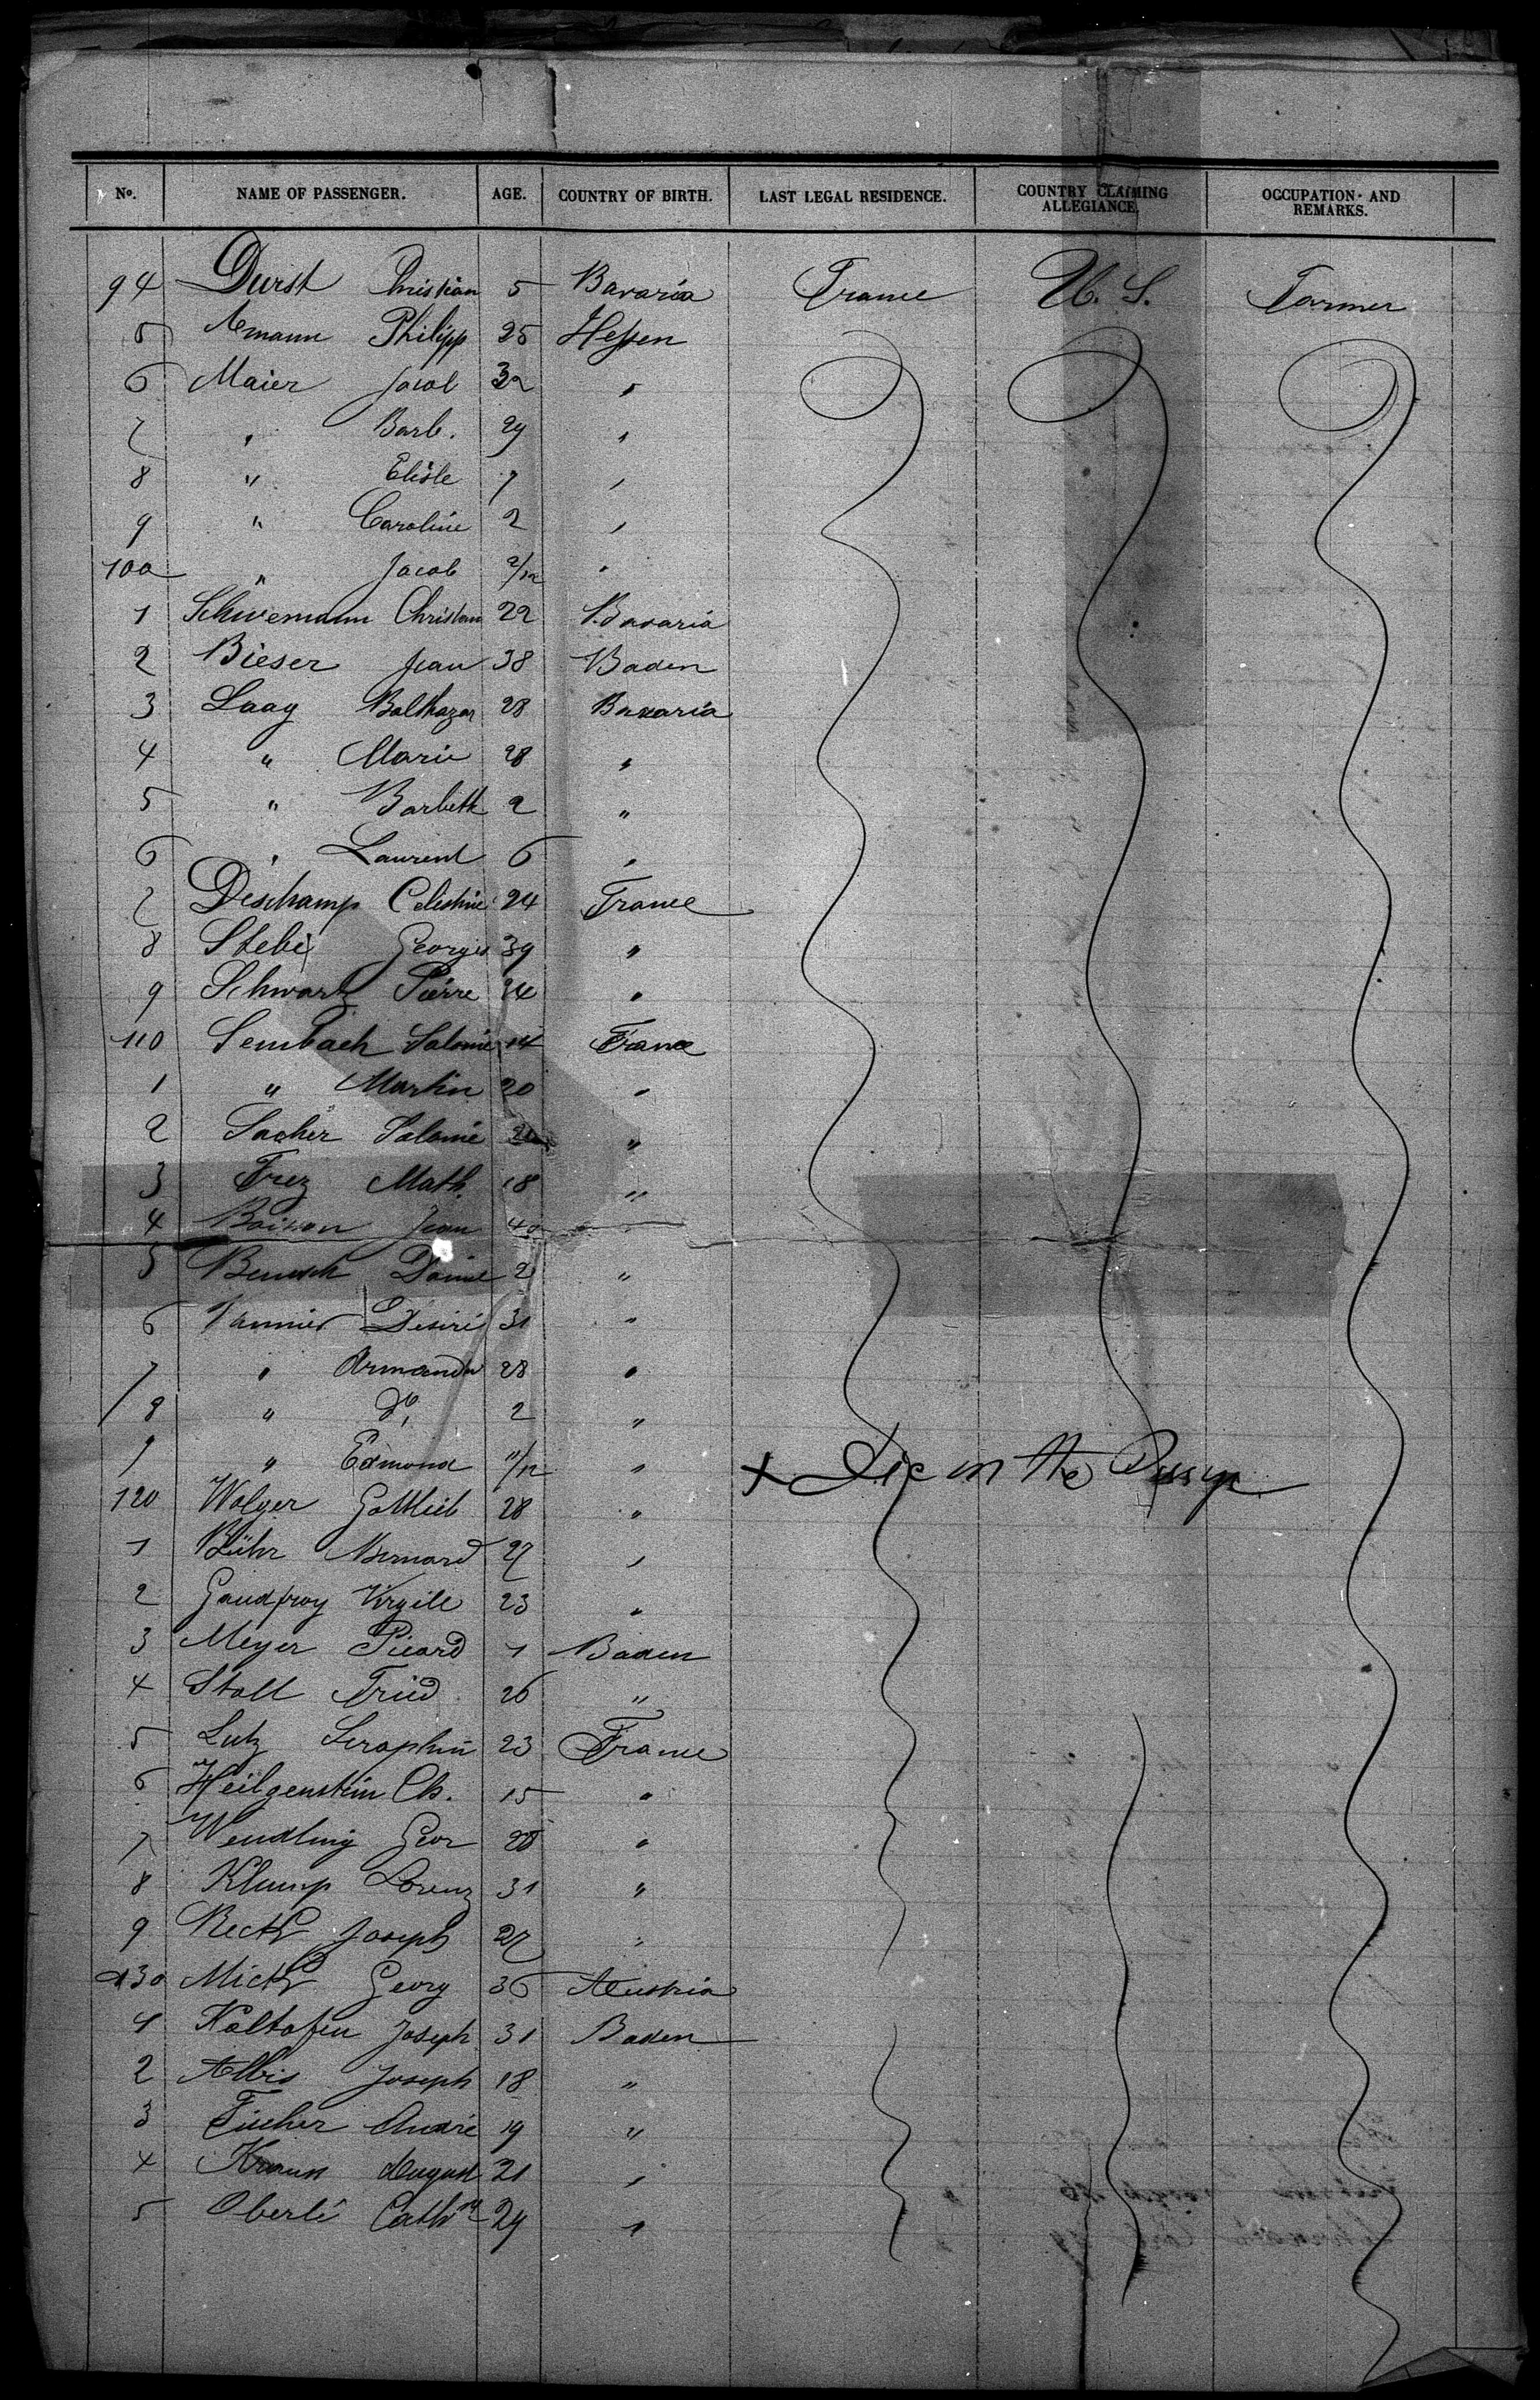 No. NAME OF PASSENGER. AGE. COUNTRY OF BIRTH. LAST LEGAL RESIDENCE. COUNTRY CLAIMING ALLEGIANCE. OCCUPATION AND REMARKS.
94 Durst Christian 5 Bavaria France U. S. Farmer
5 Philipp 25 Hessen
6 Maier Jacob 32 "
7 " Barb. 29 "
8 " Elisle 7 "
9 " Caroline 2 "
100 " Jacob 2/12 "
1 Schwemann Christian 22 Bavaria
2 Bieser Jean 38 Baden
3 Laag Balthazar 28 Bavaria
4 " Marie 28 "
5 " Barbeth 2 "
6 " Laurent 6 "
7 Deschamp Celestine 24 France
8 Stebi Georges 39 "
9 Schwartz Pierre 24 "
110 Sembach Salomé 14 France
1 " Martin 20 "
2 Sacher Salomé "
3 Frez Math. 18 "
4 Jean 40
5 2 "
6 Vannier Desiré 31 "
7 " Armanda 28 "
8 " do, 2 "
9 " Edmond 11/12 " + Die on the
120 Wolger Gottlieb 28 "
1 Bühr Bernard 27 "
2 Gaudfroy Virgile 23 "
3 Meyer Picard 1 Baden
4 Stoll Fried 26 "
5 Lutz Seraphin 23 France
6 Heilgenstein Ch. 15 "
7 Wendling Geor 28 "
8 Klump Lorenz 31 "
9 Joseph 27 "
130 Georg 36 Austria
1 Kaltofen Joseph 31 Baden
2 Albis Joseph 18 "
3 Fischer André 19 "
4 Kraus August 21 "
5 Oberlé Cathne 24 "